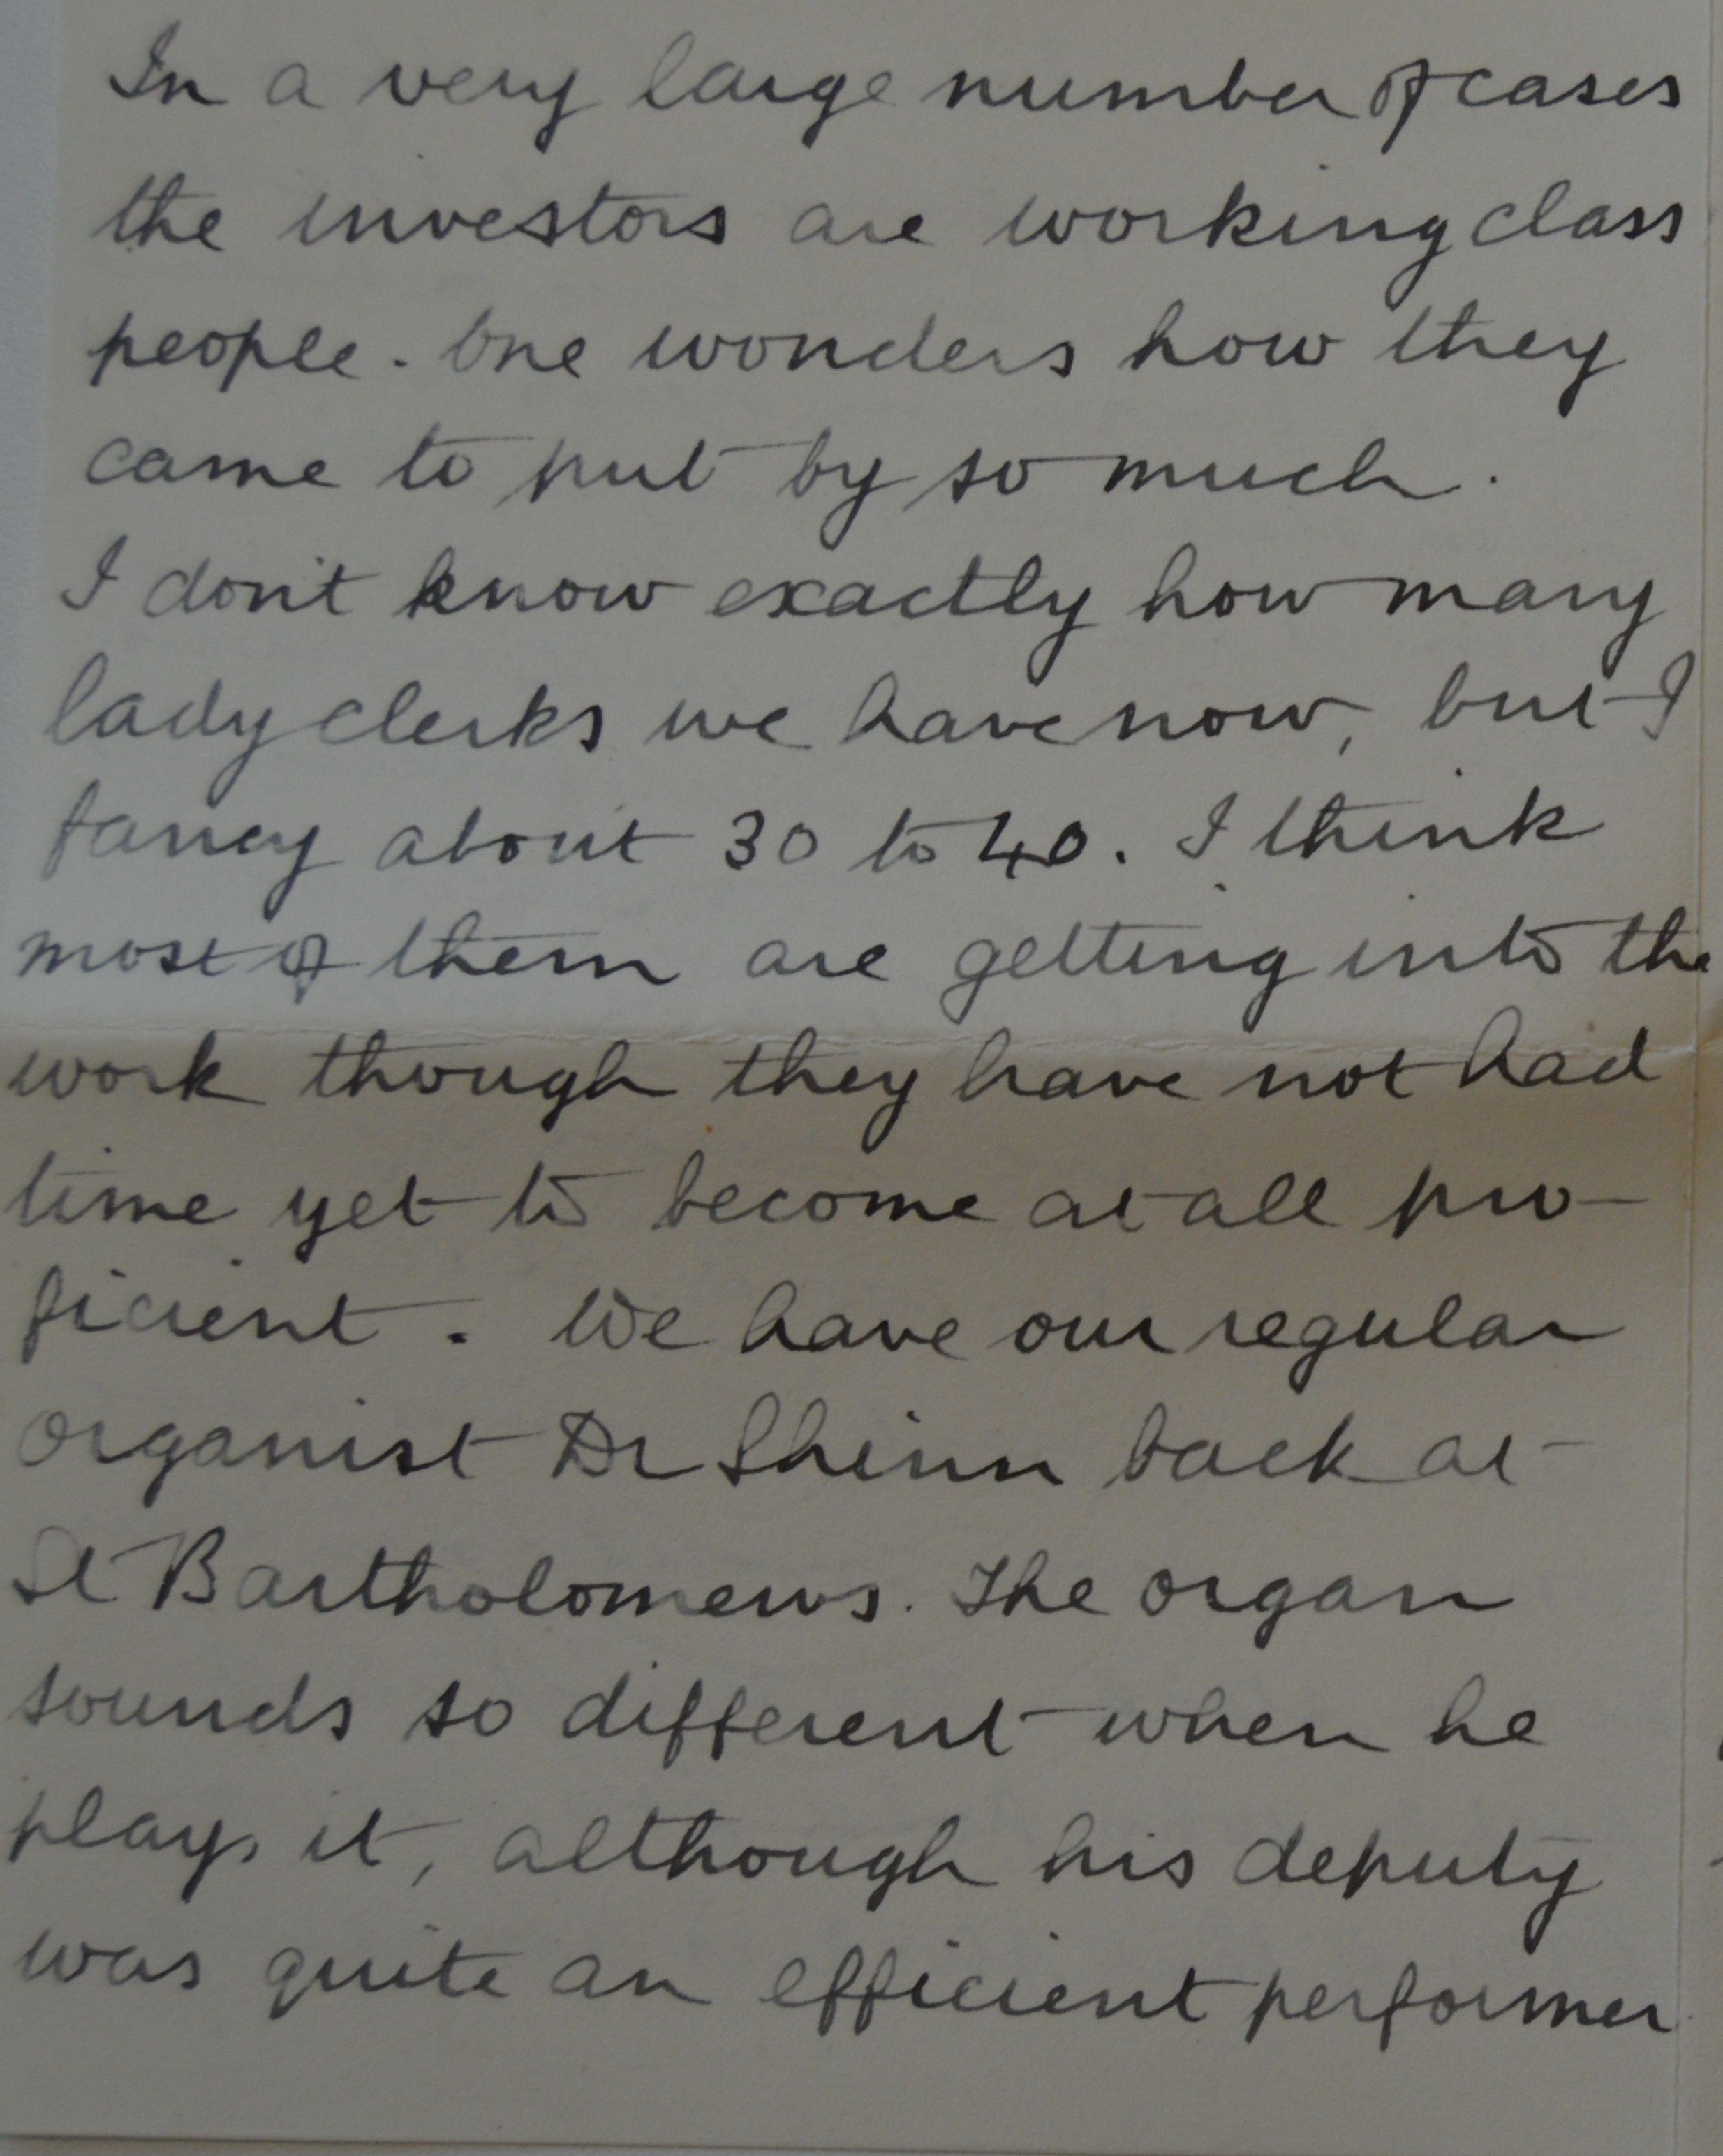 In a very large number of cases
the investors are working class
people. One wonders how they
came to put by so much.
I don't know exactly how many
lady clerks we have now, but I
fancy about 30 to 40. I think
most of them are getting into the
work though they have not had
time yet to become at all pro-
ficient. We have our regular
organist Dr Shinn back at
St Bartholomews. The organ
sounds so different when he
plays it, although his deputy
was quite an efficient performer